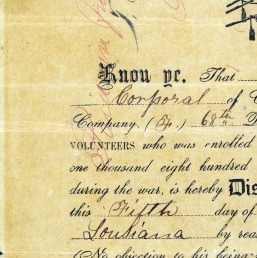 Know ye. That
Corporal of
Company. (F.) 68th
VOLUNTEERS who was enrolled
one thousand eight hundred
during the war, is hereby Dis
this Fifth day of
Louisiana by rea
(No objection to his being